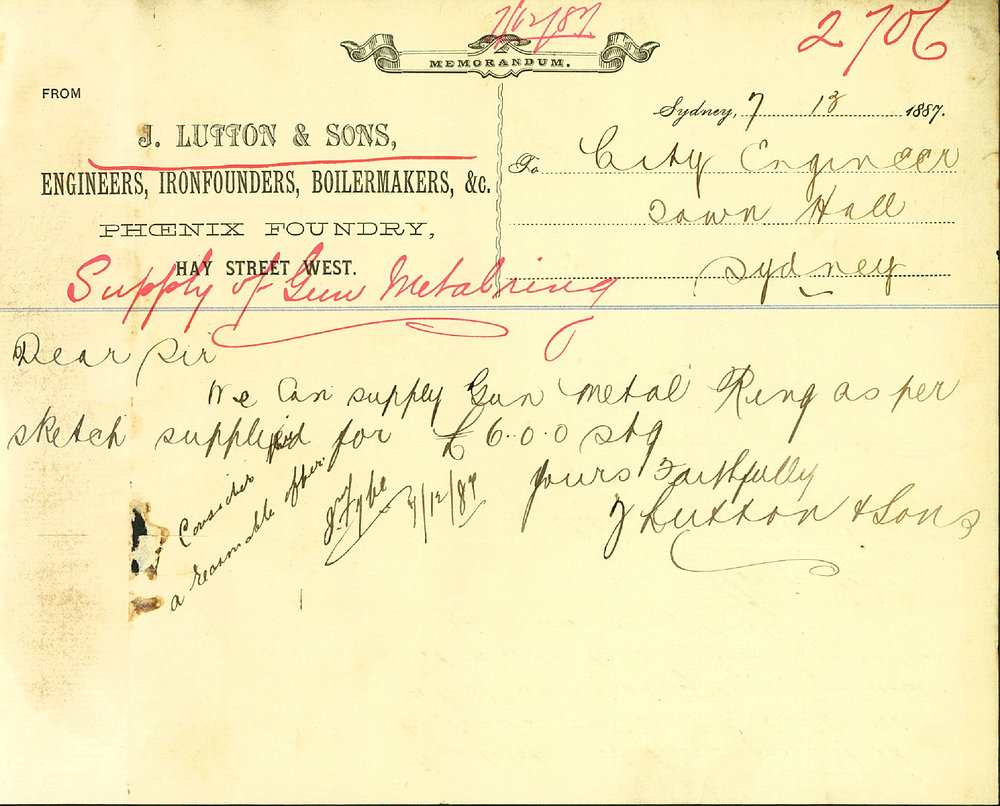 7/12/87
2706
MEMORANDUM.
FROM
J. LUTTON & SONS,
ENGINEERS, IRONFOUNDERS, BOILERMAKERS, &c.
PHŒNIX FOUNDRY,
HAY STREET WEST.
Sydney, 7 12 1887.
To City Engineer
Town Hall
Sydney
Supply of Gun Metal ring
Dear Sir
We Can supply Gun Metal Ring as per
sketch supplied for £6.0.0 stg
Yours Faithfully
J Lutton & Sons
I Consider
a reasonable offer
7/12/87